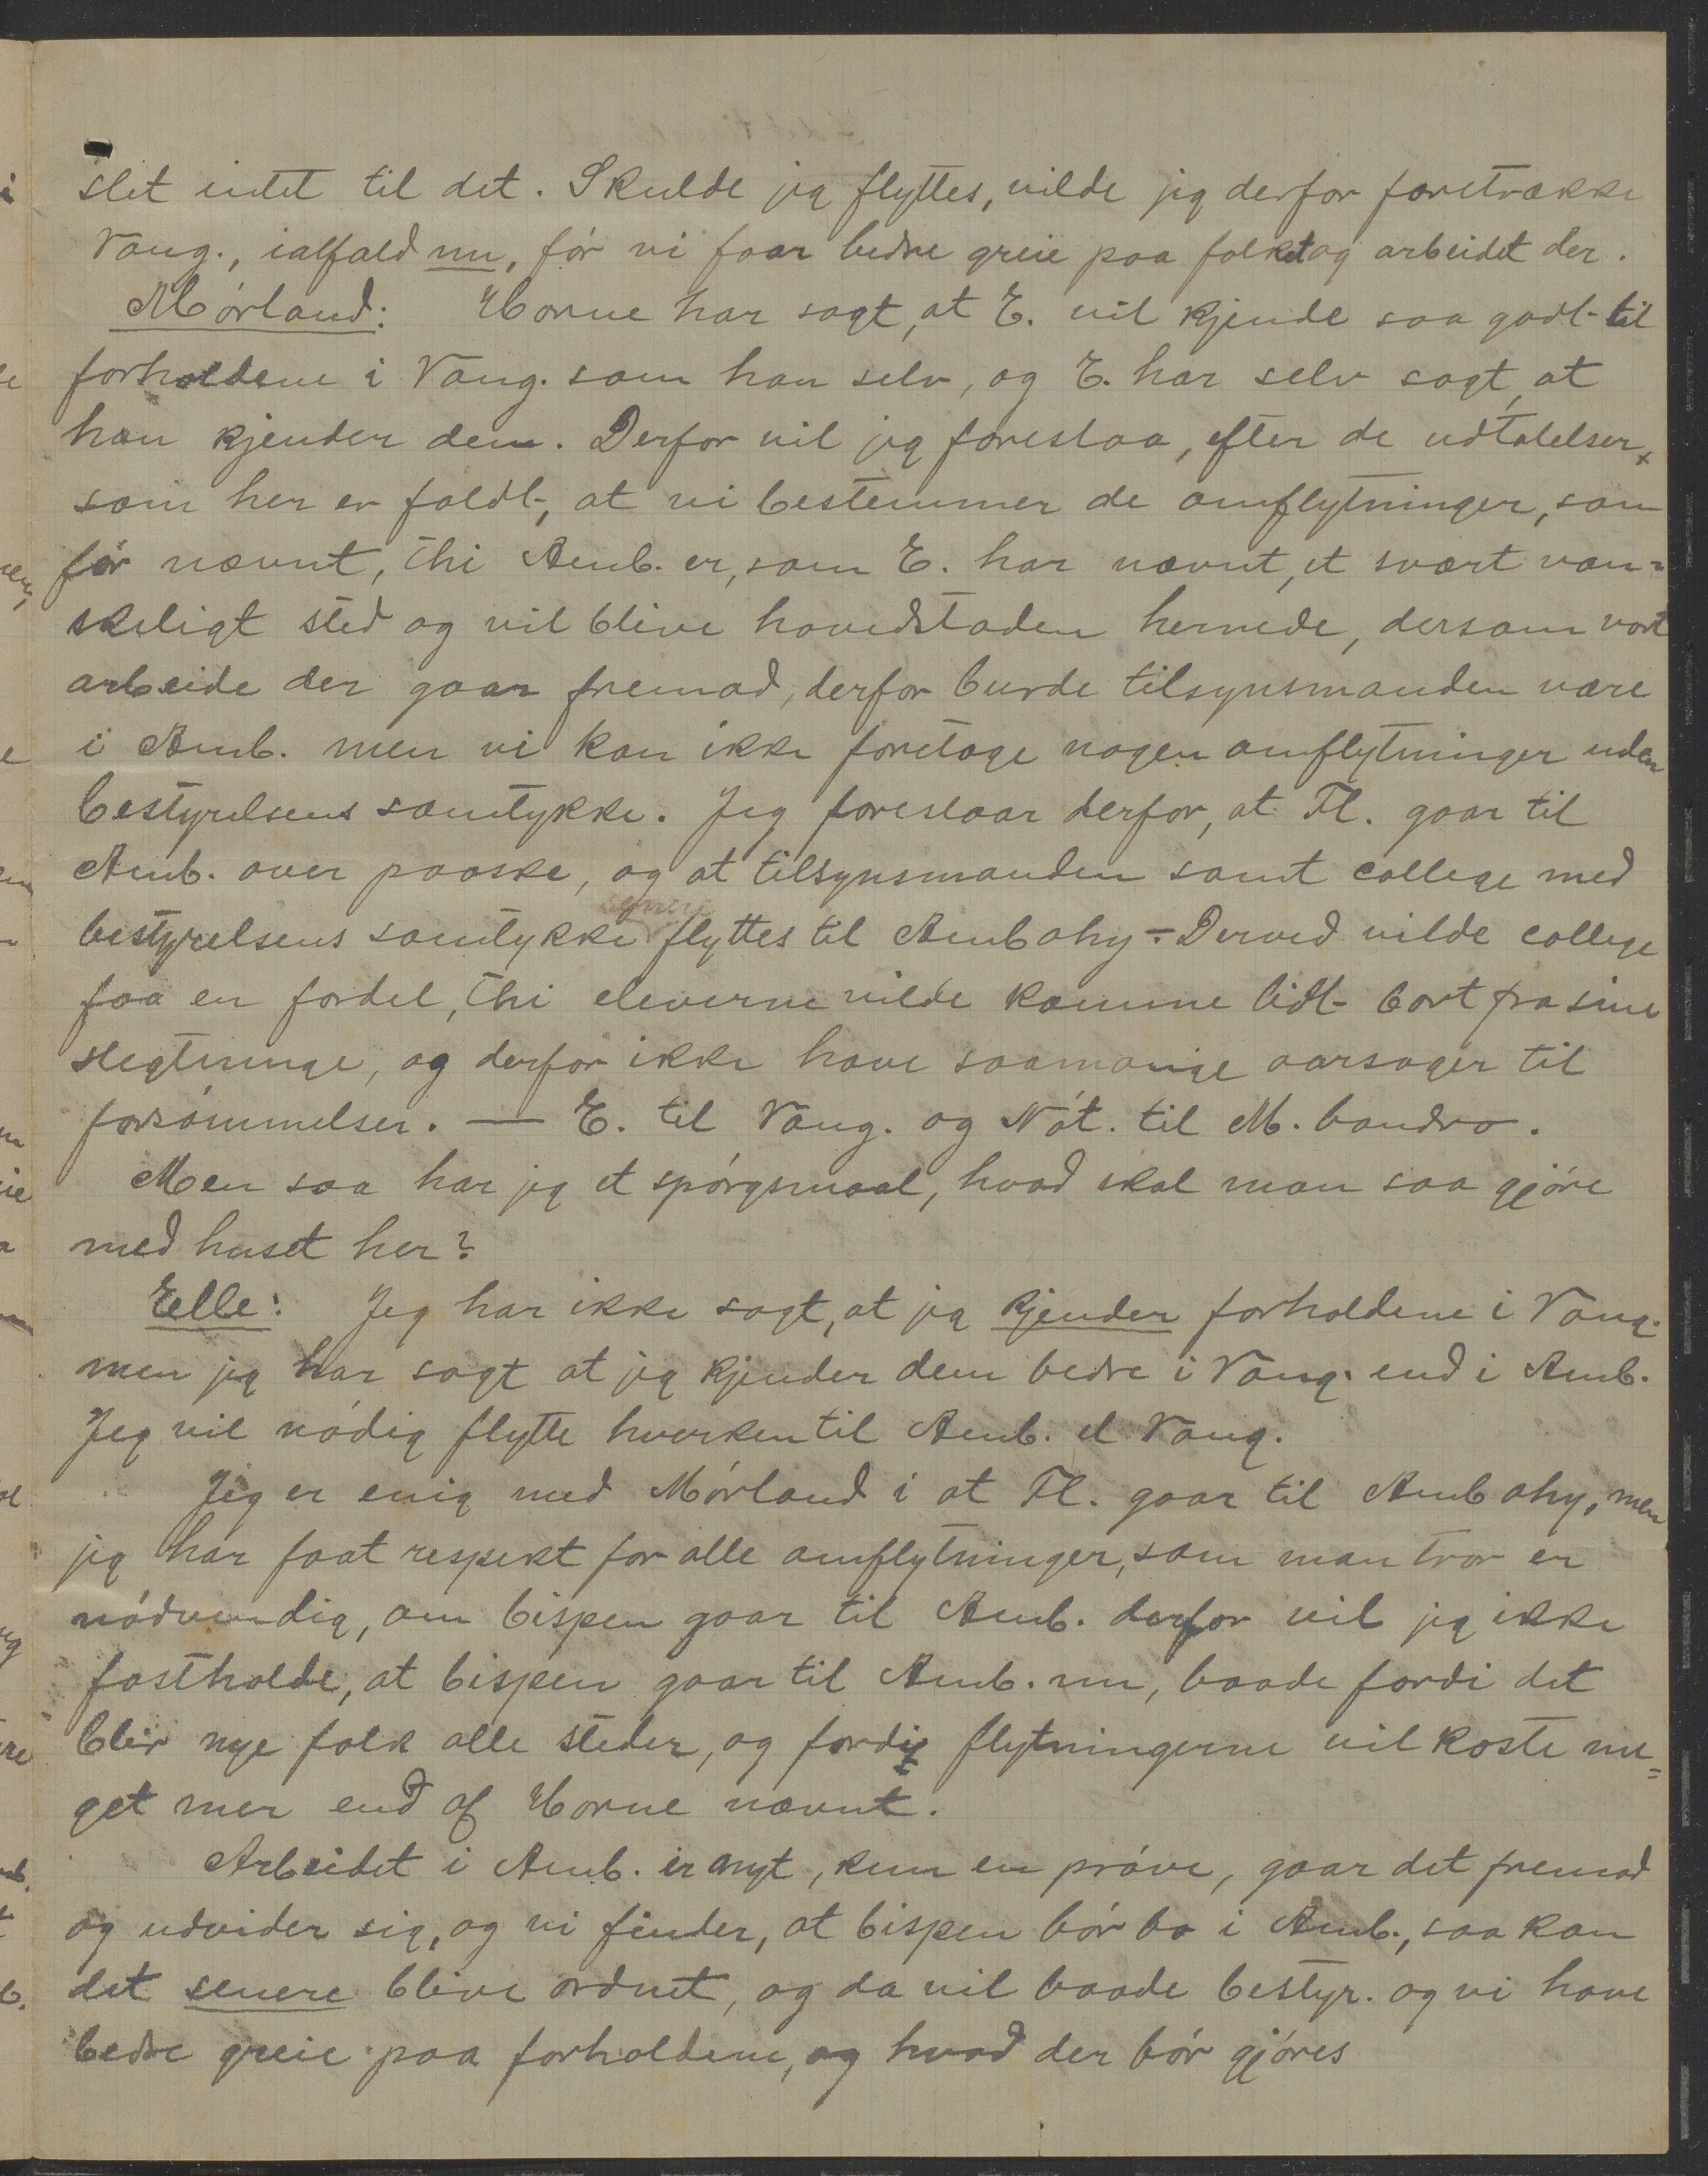 slet intet til det. Skulde jeg flyttes, vilde jeg derfor foretrække
Vang., ialfald nu, før vi faar bedre greie paa folket og arbeidet der.
Mørland: Horne har sagt, at E. vil kjende saa godt til
forholdene i Vang. som han selv, og E. har selv sagt, at
han kjender dem. Derfor vil jeg foreslaa, efter de udtalelser,
som her er faldt, at vi bestemmer de omflytninger, som
før nævnt, thi Amb. er, som E. har nævnt, et svært van=
skeligt sted og vil blive hovedstaden hernede, dersom vort
arbeide der gaar fremad, derfor burde tilsynsmanden være
i Amb. men vi kan ikke foretage nogen omflytninger uden
bestyrelsens samtykke. Jeg foreslaar derfor, at Fl. gaar til
Amb. over paaske, og at tilsynsmanden samt college med
senere
bestyrelsens samtykke flyttes til Ambohy - Derved vilde college
faa en fordel, thi eleverne vilde komme lidt bort fra sine
slegtninge, og derfor ikke have saamange aarsager til
forsømmelser. — E. til Vang. og Nøt. til M. bondro.
Men saa har jeg et spørgsmaal, hvad skal man saa gjøre
med huset her?
Elle: Jeg har ikke sagt, at jeg kjender forholdene i Vang.
men jeg har sagt at jeg kjender dem bedre i Vang. end i Amb.
Jeg vil nødig flytte hverken til Amb. el. Vang.
Jeg er enig med Mørland i at Fl. gaar til Ambohy, men
jeg har faat respekt for alle omflytninger, som man tror er
nødvendig, om bispen gaar til Amb. derfor vil jeg ikke
fastholde, at bispen gaar til Amb. nu, baade fordi det
blir nye folk alle steder, og fordi flytningerne vil koste me=
get mer end af Horne nævnt.
Arbeidet i Amb. er nyt, kun en prøve, gaar det fremad
og udvider sig, og vi finder, at bispen bør bo i Amb., saa kan
det senere blive ordnet, og da vil baade bestyr. og vi have
bedre greie paa forholdene, og hvad der bør gjøres